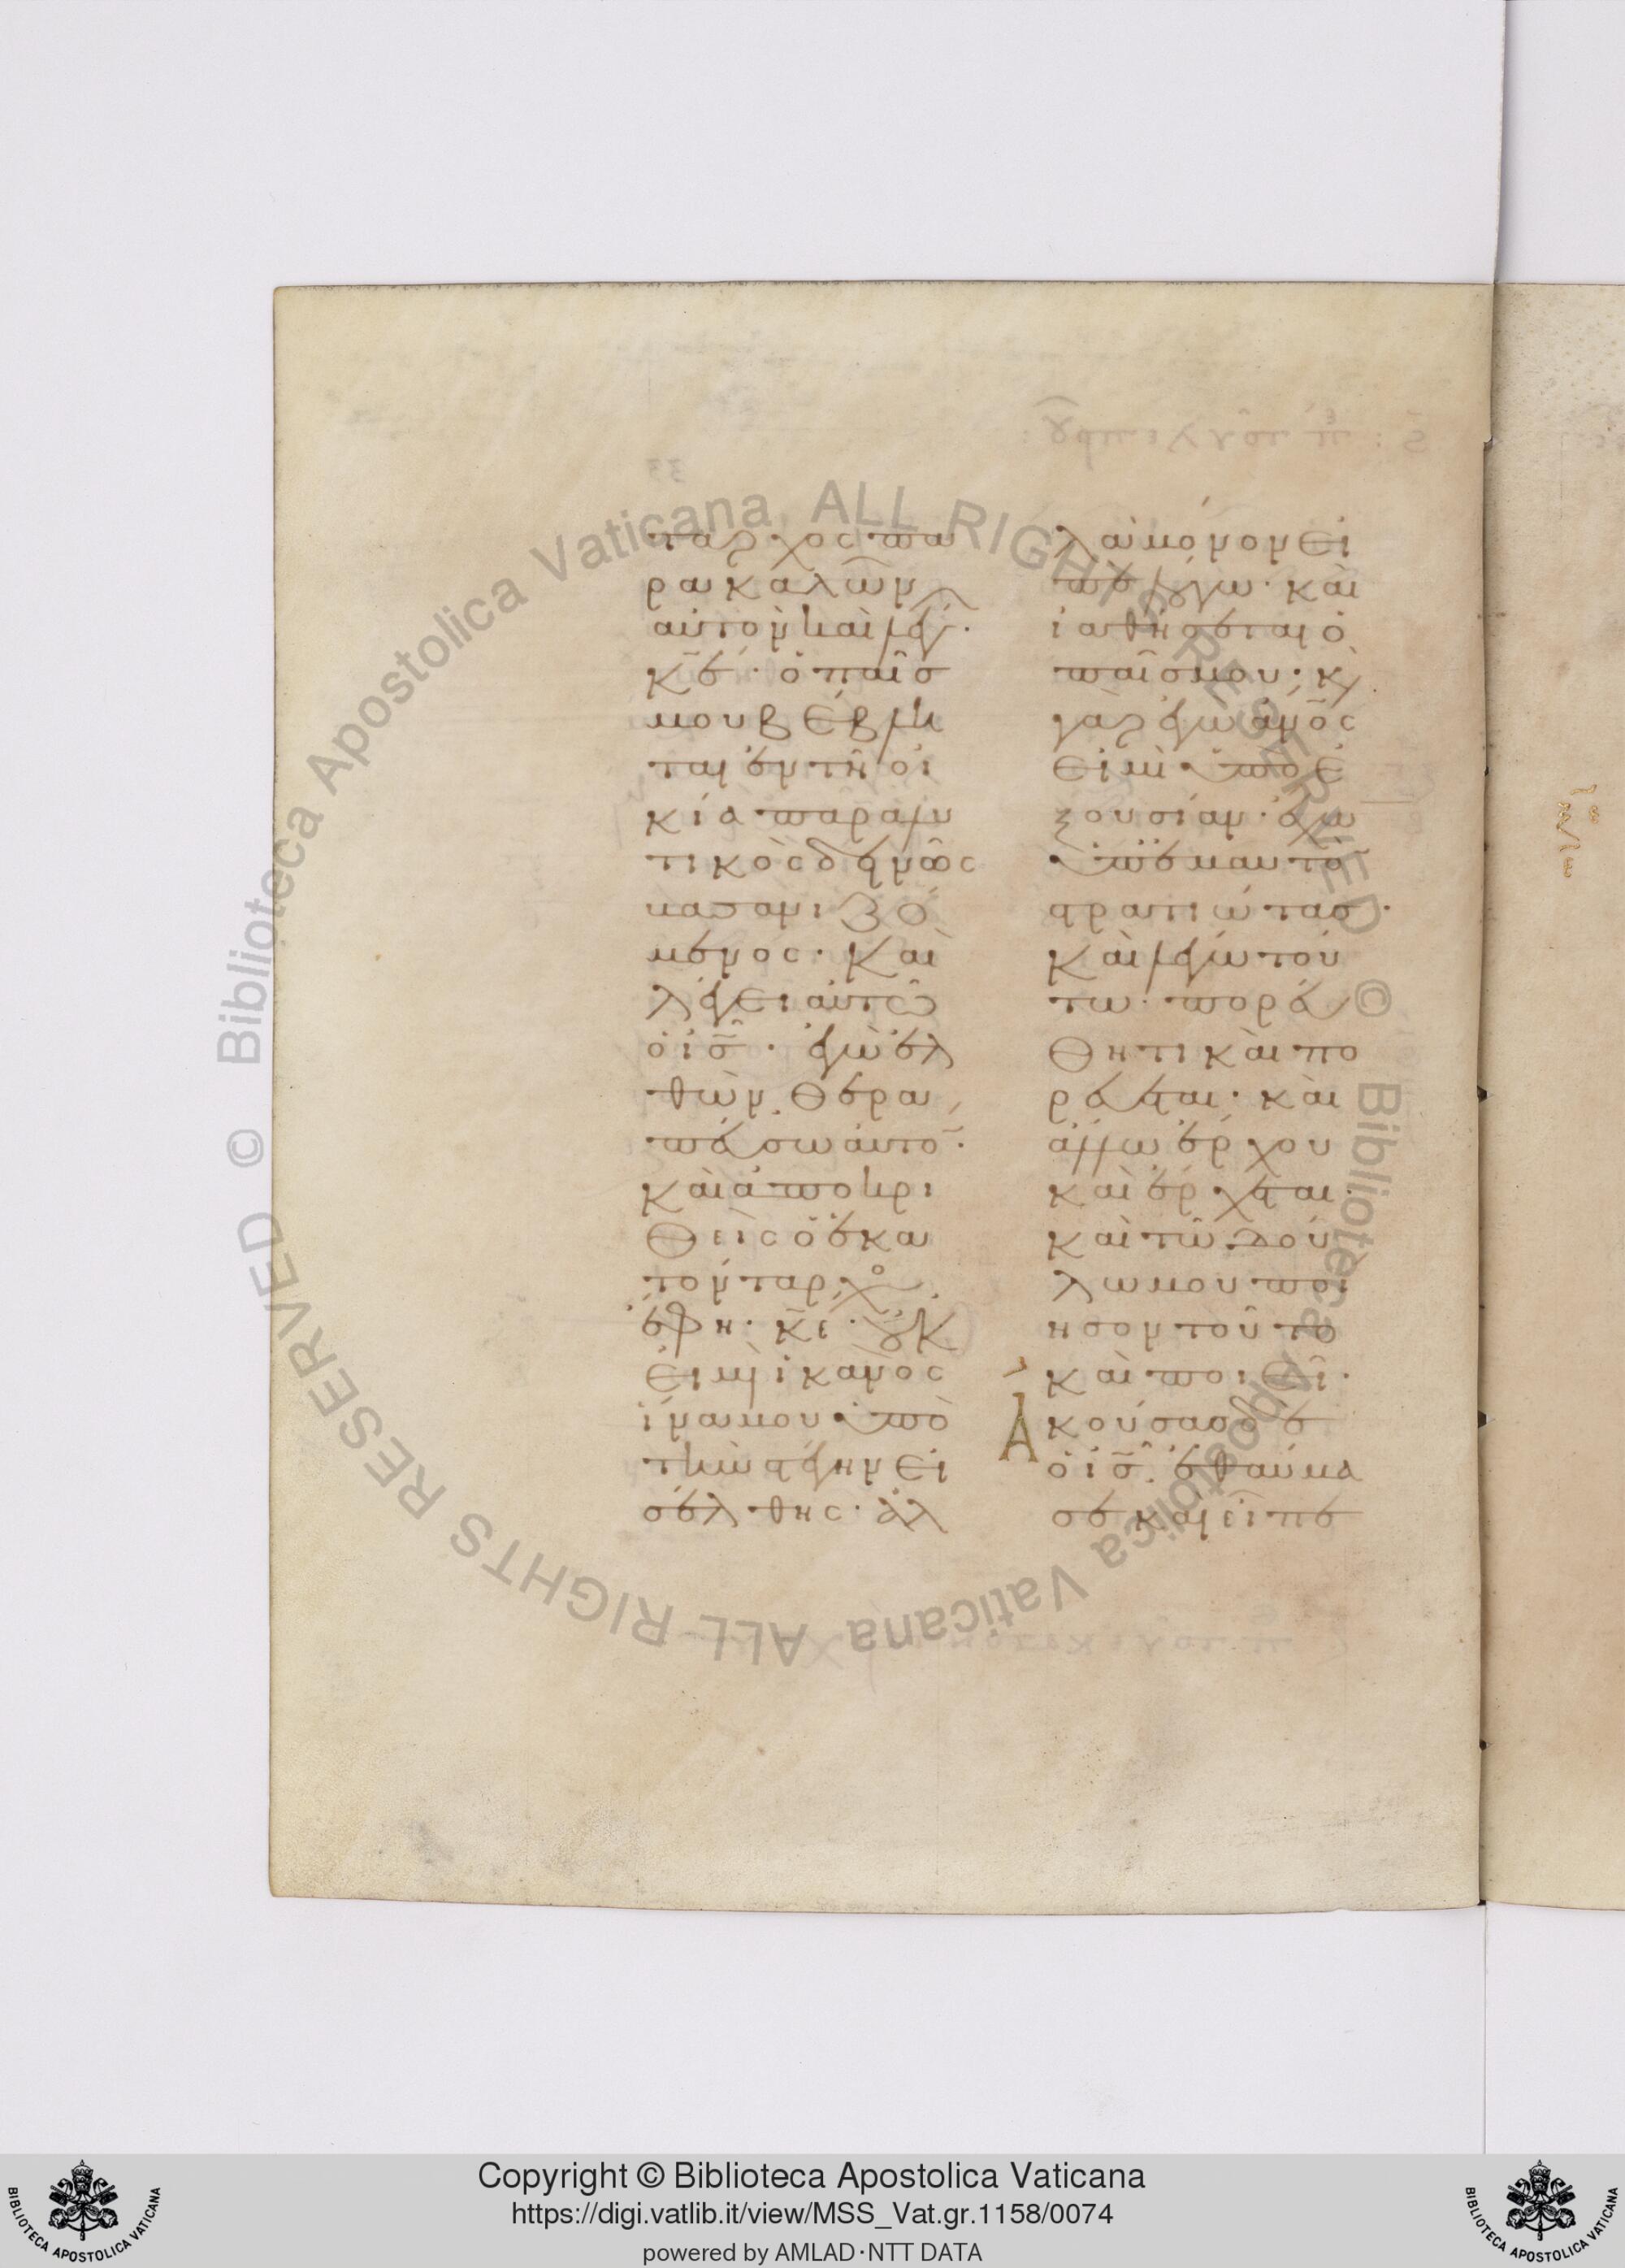 ταρχος πα
ρακαλῶν
αὐτὸν καὶ λέγ·
κ̅ε̅· ὁ παῖσ
μου βέβλη
ται ἐν τῆ οἰ
κία παραλυ
τικὸς δεινῶς
βασανιζό
μενος· Καὶ
λέγει αὐτῶ
ὁ ι̅σ̅· ἐγὼ ἐλ
θὼν θερα
πεύσω αὐτό̅·
Καὶ ἀποκρι
θεὶς ὁ ἑκα
τόνταρχο
ἔφη· κ̅ε̅· οὐκ
εἰμὶ ἱκανὸς
ἵνα μου ὑπὸ
τὴν στέγην εἰ
σέλθης· ἀλ
λὰ μόνον εἰ
πὲ λόγω· καὶ
ἰαθήσεται ὁ
παῖς μου· κ
γὰρ ἐγὼ ἄν̅ο̅ς
εἰμὶ ὑπὸ ἐ
ξουσίαν· ἔχω
ὑπ' ἐμαυτὸ̅
στρατιώτας·
Καὶ λέγω τού
τω· πορεύ
θητι καὶ πο
ρεύεται· καὶ
ἄλλω ἔρχου
καὶ ἔρχεται·
καὶ τῶ δού
λω μου ποί
ησον τοῦτο
καὶ ποιεῖ·
Ἀκούσας δὲ
ὁ ι̅σ̅· ἐθαύμα
σε καὶ εἶπε
Copyright © Biblioteca Apostolica Vaticana
https://digi.vatlib.it/view/MSS_Vat.gr.1158/0074
powered by AMLAD·NTT DATA